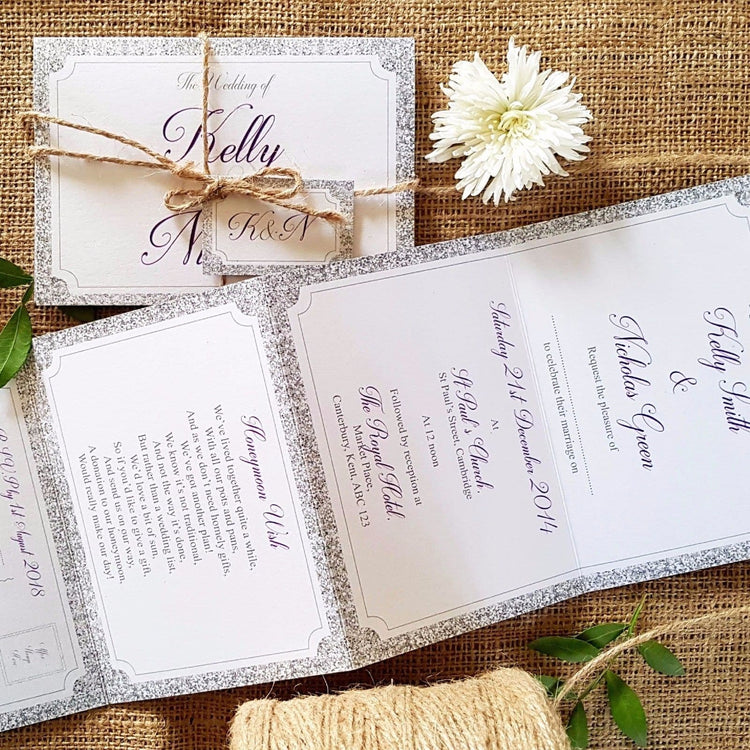 The Wedding of
Kelly
K&N
Kelly Smith
&
Nicholas Green
Request the pleasure of
to celebrate their marriage on
Saturday 21st December 2014
At
St Paul's Church,
St Paul's Street, Cambridge
At 12 noon
Followed by reception at
The Royal Hotel,
Market Place,
Canterbury, Kent, ABC 123
Honeymoon Wish
We've lived together quite a while,
With all our pots and pans,
And as we don't need homely gifts,
We've got another plan!
We know it's not traditional,
And not the way it's done,
But rather than a wedding list,
We'd love a bit of sun,
So if you'd like to give a gift,
And send us on our way,
A donation to our honeymoon,
Would really make our day!
R.S.V.P by 1st August 2018